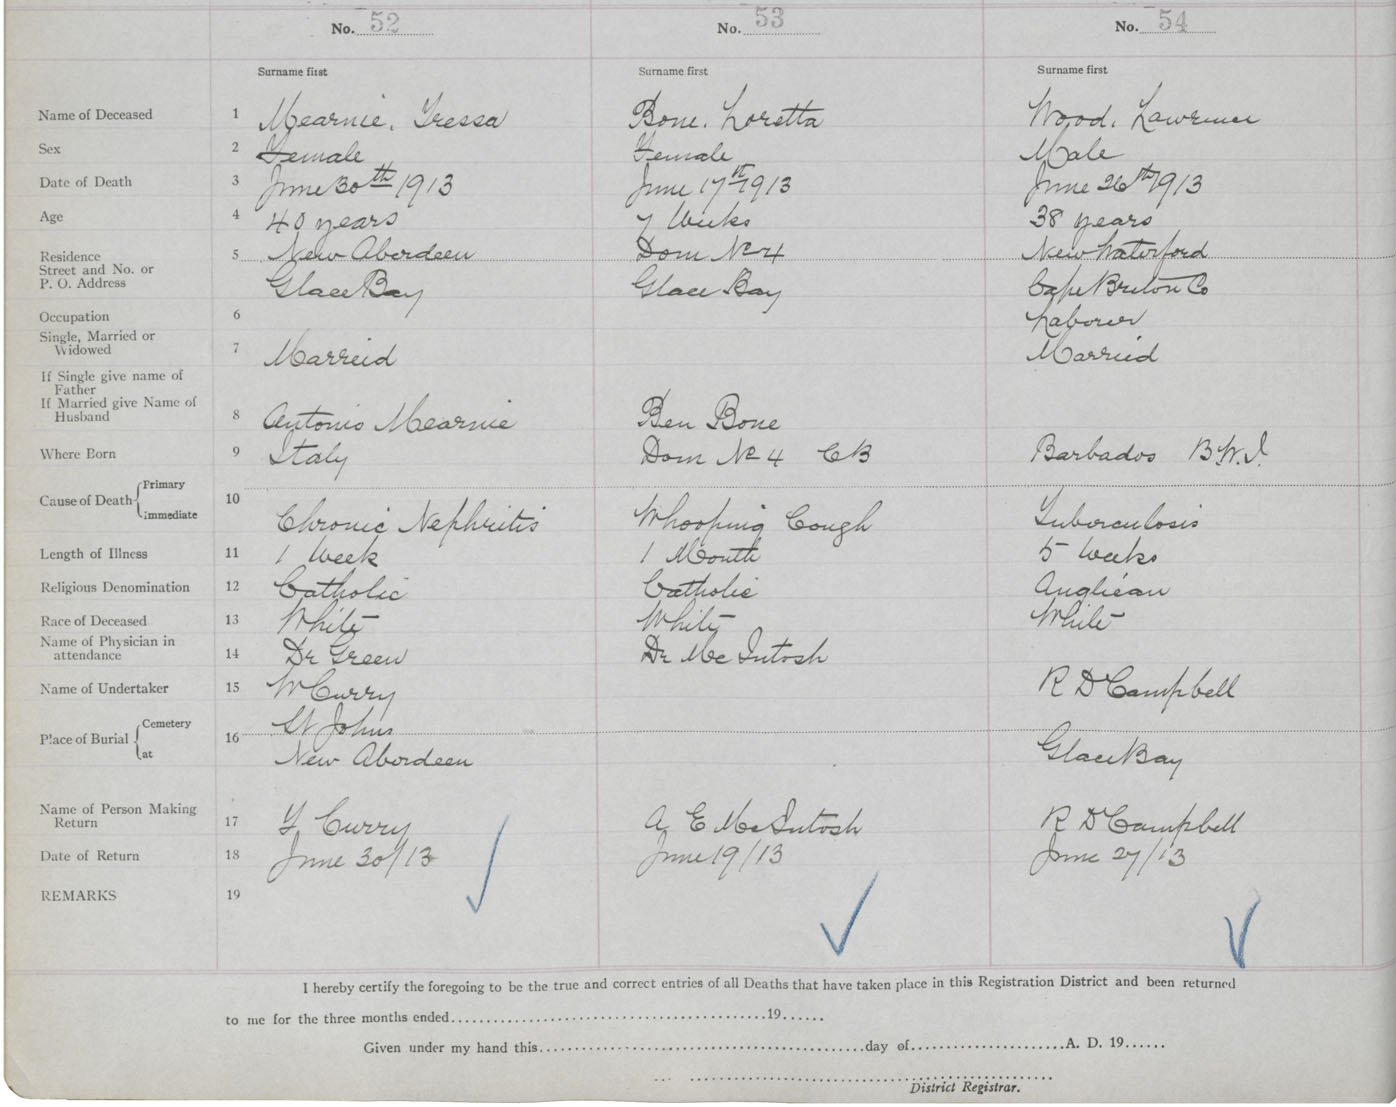 No. 52 No. 53 No. 54
Surname first Surname first Surname first
Name of Deceased 1 Mearnie, Tressa Bone, Loretta Wood, Lawrence
Sex 2 Female Female Male
Date of Death 3 June 30th 1913 June 17th 1913 June 26th 1913
Age 4 40 years 7 Weeks 38 years
Residence 5 New Aberdeen Dom No 4 New Waterford
Street and No. or
P. O. Address Glace Bay Glace Bay Cape Breton Co
Occupation 6 Laborer
Single, Married or
Widowed 7 Marreid Married
If Single give name of
Father
If Married give Name of
Husband 8 Antonio Mearnie Ben Bone
Where Born 9 Italy Dom No 4 CB Barbados B.W.I.
Cause of Death Primary
Immediate 10 Chronic Nephritis Whooping Cough Tuberculosis
Length of Illness 11 1 Week 1 Month 5 Weeks
Religious Denomination 12 Catholic Catholic Anglican
Race of Deceased 13 White White White
Name of Physician in
attendance 14 Dr Green Dr McIntosh
Name of Undertaker 15 W Curry R D Campbell
Place of Burial Cemetery 16 St Johns
at New Aberdeen Glace Bay
Name of Person Making
Return 17 Y Curry A E McIntosh R D Campbell
Date of Return 18 June 30/13 June 19/13 June 27/13
REMARKS 19
I hereby certify the foregoing to be the true and correct entries of all Deaths that have taken place in this Registration District and been returned
to me for the three months ended..........19......
Given under my hand this..........day of..........A. D. 19......
District Registrar.